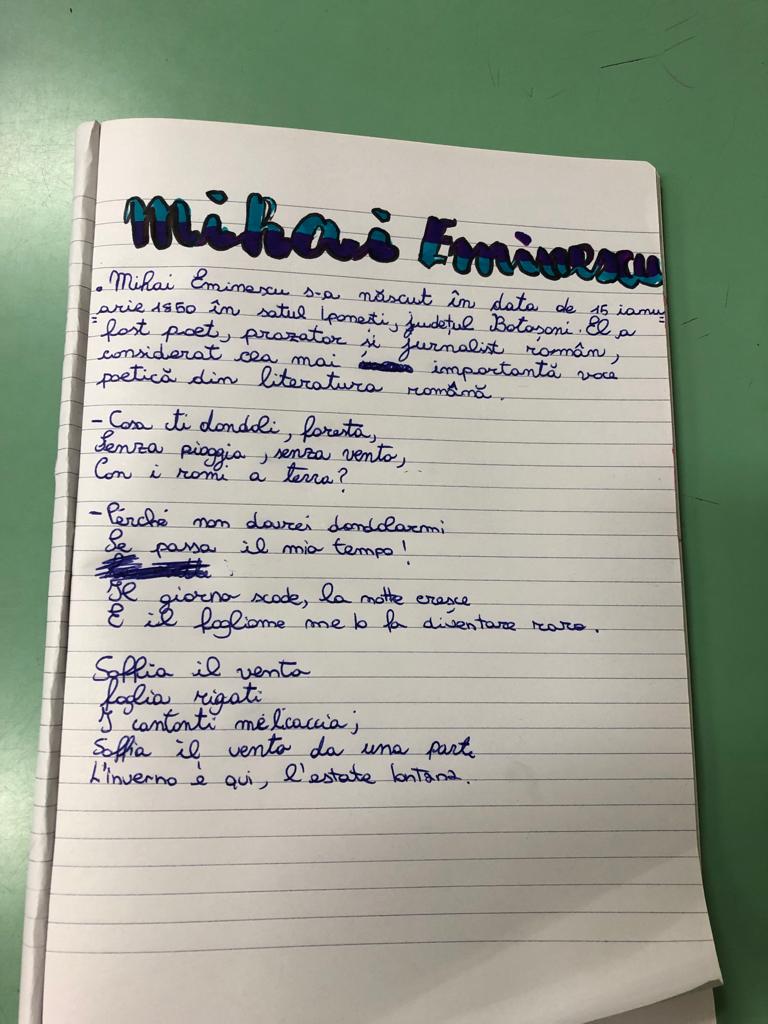 Mihai Eminescu
. Mihai Eminescu s-a născut în data de 15 ianu
=arie 1850 în satul Iponești, județul Botoșoni. El a
fost poet, prozator și jurnalist român,
considerat cea mai importantă voce
poetică din literatura română.
- Cosa ti dondoli, foresta,
Senza pioggia, senza vento,
Con i romi a terra?
- Perché non dovrei dondolarmi
Se passa il mio tempo!
Il giorno scade, la notte cresce
E il fogliome me lo fa diventare raro.
Soffia il vento
foglia rigati
I contonti me li caccia;
Soffia il vento da una parte
L'inverno è qui, l'estate lontana.